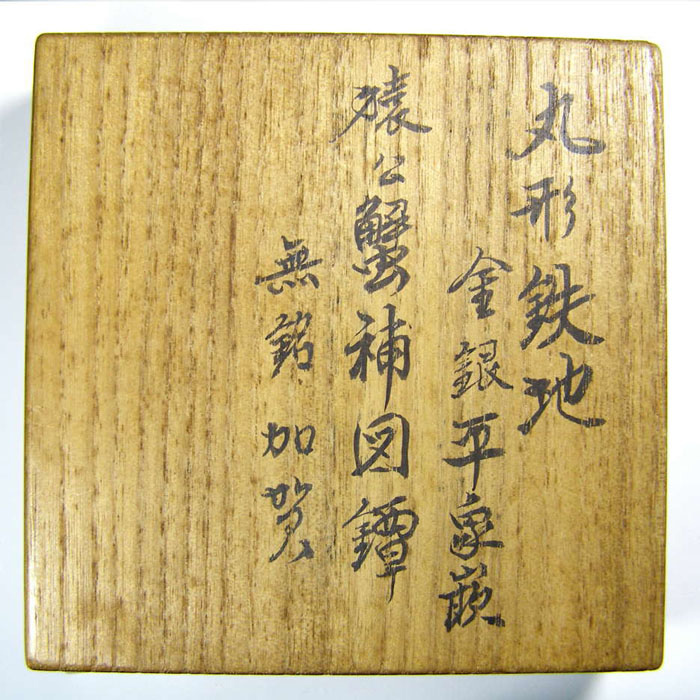 丸形鉄地
金銀平象嵌
猿公蟹補図鐔
無銘加賀